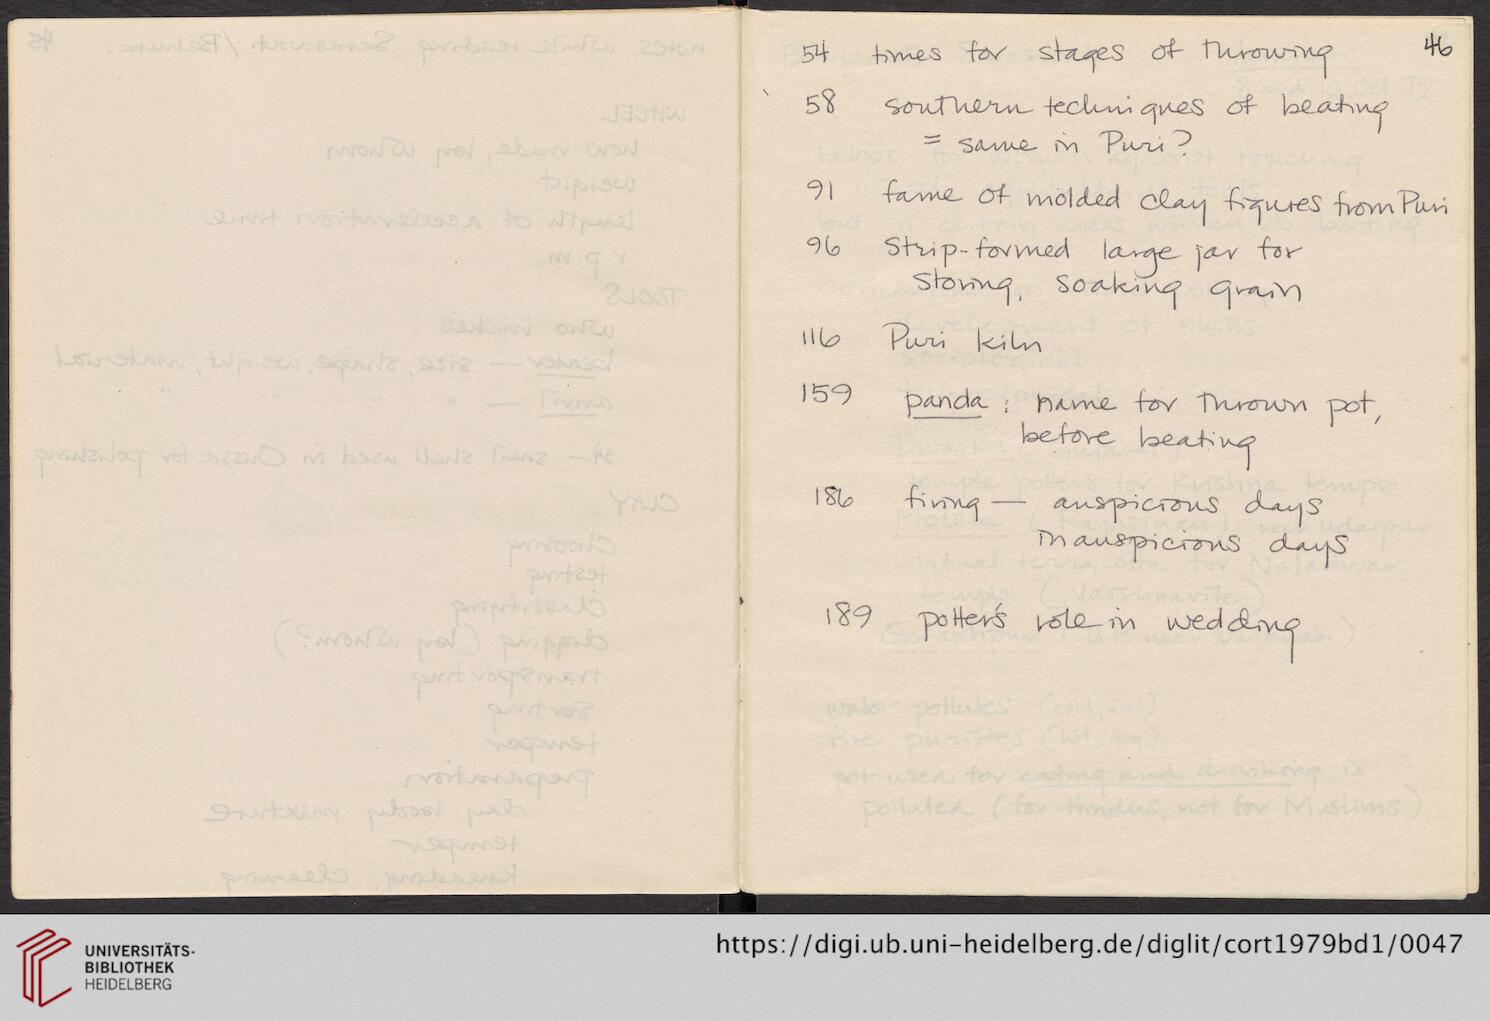 46
54 times for stages of throwing
58 southern techniques of beating
= same in Puri?
91 fame of molded clay figures from Puri
96 Strip-formed large jar for
storing, soaking grain
116 Puri kiln
159 panda : name for thrown pot,
before beating
186 firing — auspicious days
inauspicious days
189 potter's role in wedding
UNIVERSITÄTS-
BIBLIOTHEK
HEIDELBERG
https://digi.ub.uni-heidelberg.de/diglit/cort1979bd1/0047